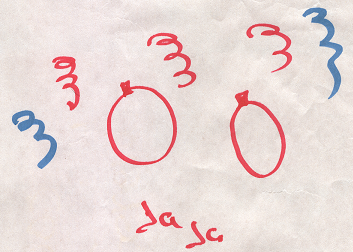 Ja Ja